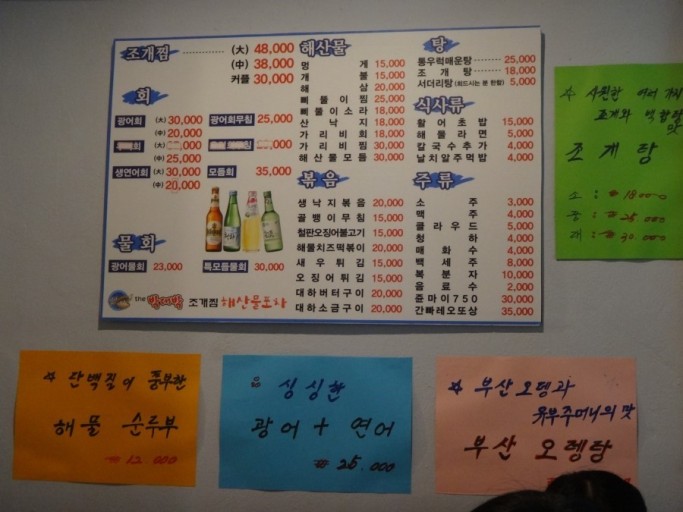 조개찜 (大) 48,000
(中) 38,000
커플 30,000
회
광어회 (大) 30,000 광어회무침 25,000
(中) 20,000
(大)
(中) 25,000
생연어회 (大) 30,000 모듬회 35,000
(中) 20,000
물회
광어물회 23,000 특모듬물회 30,000
the 방디방 조개찜 해산물포차
해산물
멍 게 15,000
개 불 15,000
해 삼 20,000
삐뚤이찜 25,000
삐뚤이소라 18,000
산 낙 지 18,000
가리비회 18,000
가리비찜 30,000
해산물모듬 30,000
볶음
생낙지볶음 20,000
골뱅이무침 15,000
철판오징어불고기 15,000
해물치즈떡볶이 20,000
새우튀김 15,000
오징어튀김 15,000
대하버터구이 20,000
대하소금구이 20,000
탕
통우럭매운탕 25,000
조 개 탕 18,000
서더리탕 (회드시는 분 한함) 5,000
식사류
활어초밥 15,000
해물라면 5,000
칼국수추가 4,000
날치알주먹밥 4,000
주류
소 주 3,000
맥 주 4,000
클라우드 5,000
청 하 4,000
매 화 수 4,000
백 세 주 8,000
복 분 자 10,000
음 료 수 2,000
쥰마이750 30,000
간빠레오또상 35,000
☆ 시원한 여러 가지
조개와 얼큰한
맛
조개탕
소 : ₩ 18000
중 : ₩ 25 000
대 : ₩ 30 000
☆ 단백질이 풍부한
해물 순두부
₩ 12 000
싱싱한
광어 + 연어
₩ 25,000
☆ 부산오뎅과
유부주머니의 맛
부산 오뎅탕